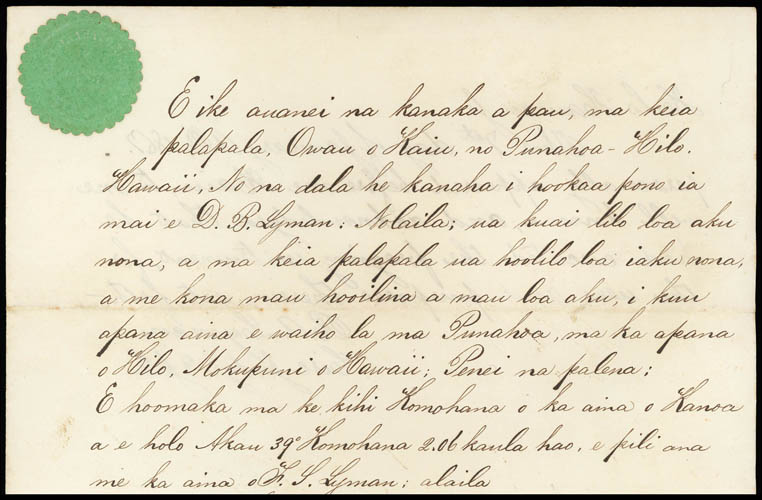 E ike auanei na kanaka a pau, ma keia
palapala, Owau o Kaiu, no Punahoa - Hilo,
Hawaii, No na dala he kanaha i hookaa pono ia
mai e D. B. Lyman: Nolaila; ua kuai lilo loa aku
nona, a ma keia palapala ua hoolilo loa iaku nona,
a me kona mau hooilina a mau loa aku, i kuu
apana aina e waiho la ma Punahoa, ma ka apana
o Hilo, Mokupuni o Hawaii; Penei na palena;
E hoomaka ma ke kihi Komohana o ka aina o Kanoa
a e holo Akau 39° Komohana 2.06 kaula hao, e pili ana
me ka aina o F. S. Lyman: alaila